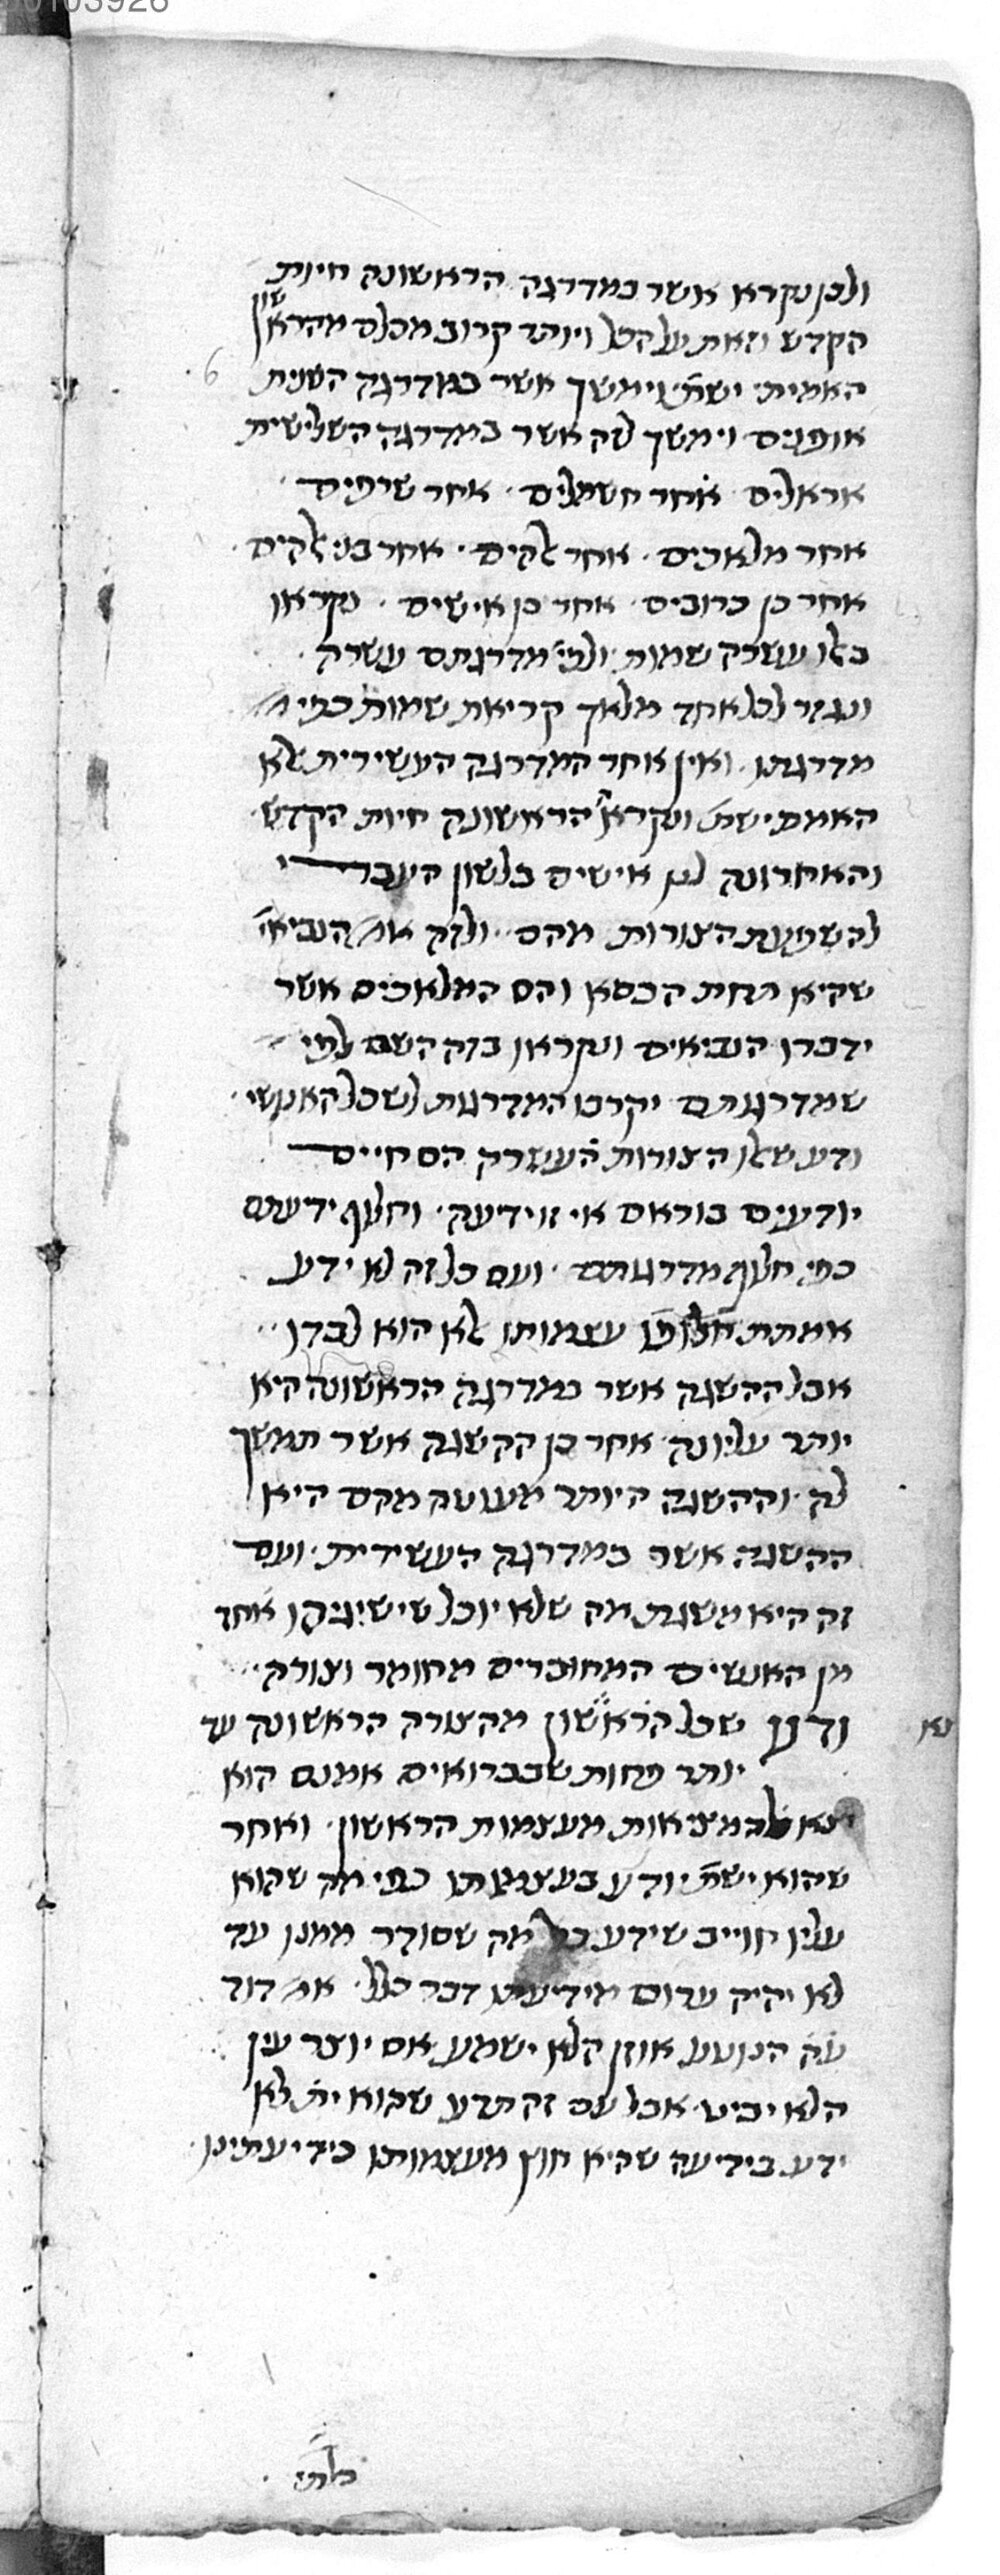 ולכן נקרא אשר במדרגה הראשונה חיות
הקדש וזאת על הכל ויותר קרוב מכלם מהראשון
האמיתי ישת׳ וימשך אשר במדרגה השנית
אופנים וימשך לזה אשר במדרגה השלישית
אראלים אחר חשמלים אחר שרפים
אחר מלאכים אחר אלהים אחר בני אלהים
אחר כן כרובים אחר כן אישים נקראו
באלו עשרה שמות ולפי מדרגתם עשרה
ונגזר לכל אחד מלאך קריאת שמות כפי
מדרגתו ואין אחר המדרגה העשירית אלא
האמת ישת׳ ונקרא הראשונה חיות הקדש
והאחרונה אישים בלשון העברי
להשפעת הצורות מהם ולזה אמ׳ הנביא
שהיא תחת הכסא והם המלאכים אשר
ידברו הנביאים ונקראו בזה השם לפי
שמדרגתם יקרבו המדרגות לשכל האנושי
ודע שאלו הצורות העשרה הם חיים
יודעים בוראם אי זו ידיעה וחלוף ידיעתם
כפי חלוף מדרגותם ועם כל זה לא ידע
אמתת עצמותו אלא הוא לבדו
אבל ההשגה אשר במדרגה הראשונה היא
יותר עליונה אחר כן ההשגה אשר תמשך
לה וההשגה היותר מעוטה מהם היא
ההשגה אשר במדרגה העשירית ועם
זה היא משגת מה שלא יוכל שישיגהו אחד
מן האנשים המחוברים מחומר וצורה
שכל הראשון מהצורה הראשונה עד
יותר פחות שבברואים אמנם הוא
מעצמות הראשון ואחר
שהוא ישת׳ יודע בעצמותו כפי מה שהוא
עליו חוייב שידע כל מה שסודר ממנו עד
לא יהיה ערום מידיעתו דבר כלל אמ׳ דוד
ע״ה הנוטע אוזן הלא ישמע אם יוצר עין
הלא יביט אבל עם זה תדע שהוא ית׳ לא
ידע בידיעה שהיא חוץ מעצמותו כידיעתינו